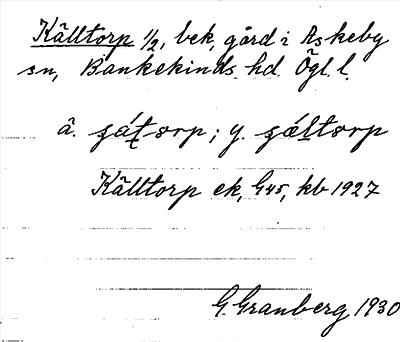 Källtorp 1/2, bek, gård i Askeby
sn, Bankekinds hd. Ögl. l.
ä. ʂátorp; y. ʂáltorp
Källtorp ek, G45, kb 1927
G. Granberg 1930